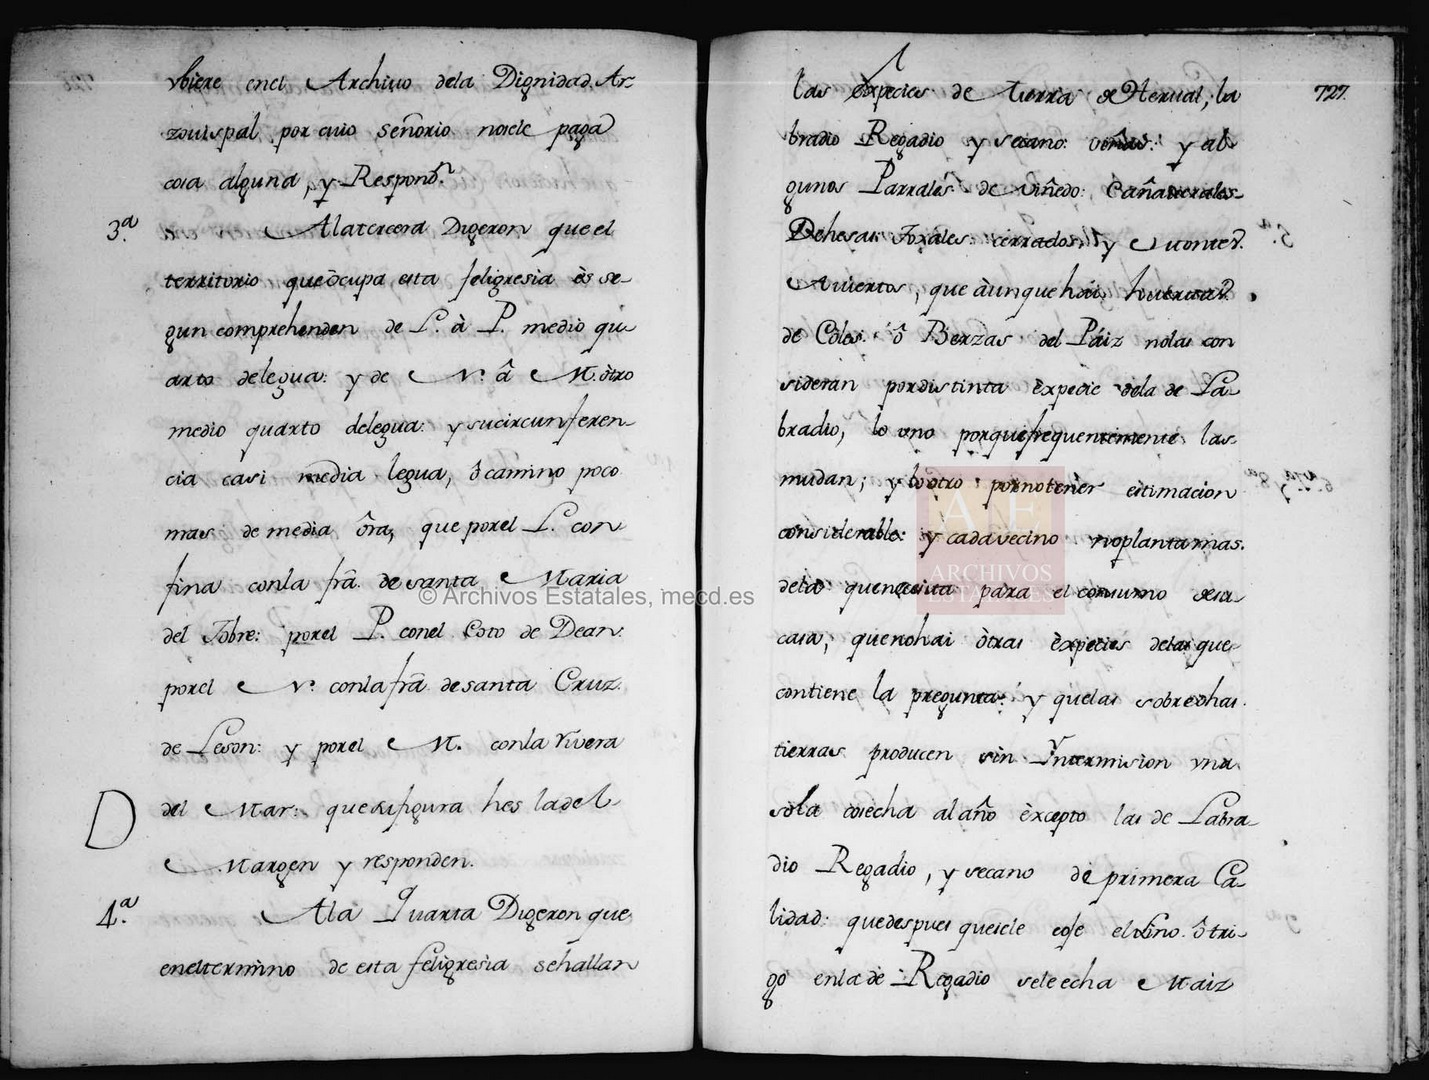 vbiere enel Archiuo dela Dignidad Ar-
zouispal por cuio señorio nosele paga
cosa alguna, y Respond.n
3.a Ala tercera Digeron que el
territorio que òcupa esta feligresia ès se-
gun comprehenden de L. à P. medio qu
arto delegua: y de N. â M. òtro
medio quarto delegua: y su circunferen
cia casi media legua, ò camino poco
mas de media ôra, que porel L. con
fina conla frã. de santa Maria
del Tobre: porel P. conel Coto de Dean:
porel N. conla frã de santa Cruz
de Leson: y porel M. conla rivera
del Mar: que su figura hes la del
D Margen y responden.
4.a Ala Quarta Digeron que
enel termino de esta feligresia sehallan
727.
las èxpecies de tierra de Herual, la
bradio Regadio y secano: y al
gunos Parrales de viñedo: Cañaverales
Dehesas Toxales cerrados, y Montes
Auiertos, que àunque hai huertas
de Côles ô Berzas del Páiz nolas con
sideran por distinta èxpecie dela de La
bradio, lo uno porque frequentemente las
mudan; y lo otro por notener estimacion
considerable: y cada vecino noplanta mas.
dela que necesita para el consumo desu
casa; que no hai òtras èxpecies delas que
contiene la pregunta: y quelas sobredhas
tierras producen sin Yntermision vna
sola cosecha al año èxcepto las de Labra
dio Regadio, y secano de primera Ca
lidad: que despues quesele coje el lino ô tri
go enla de Regadio sele echa Maiz
© Archivos Estatales, mecd.es
AE
ARCHIVOS
ESTATALES